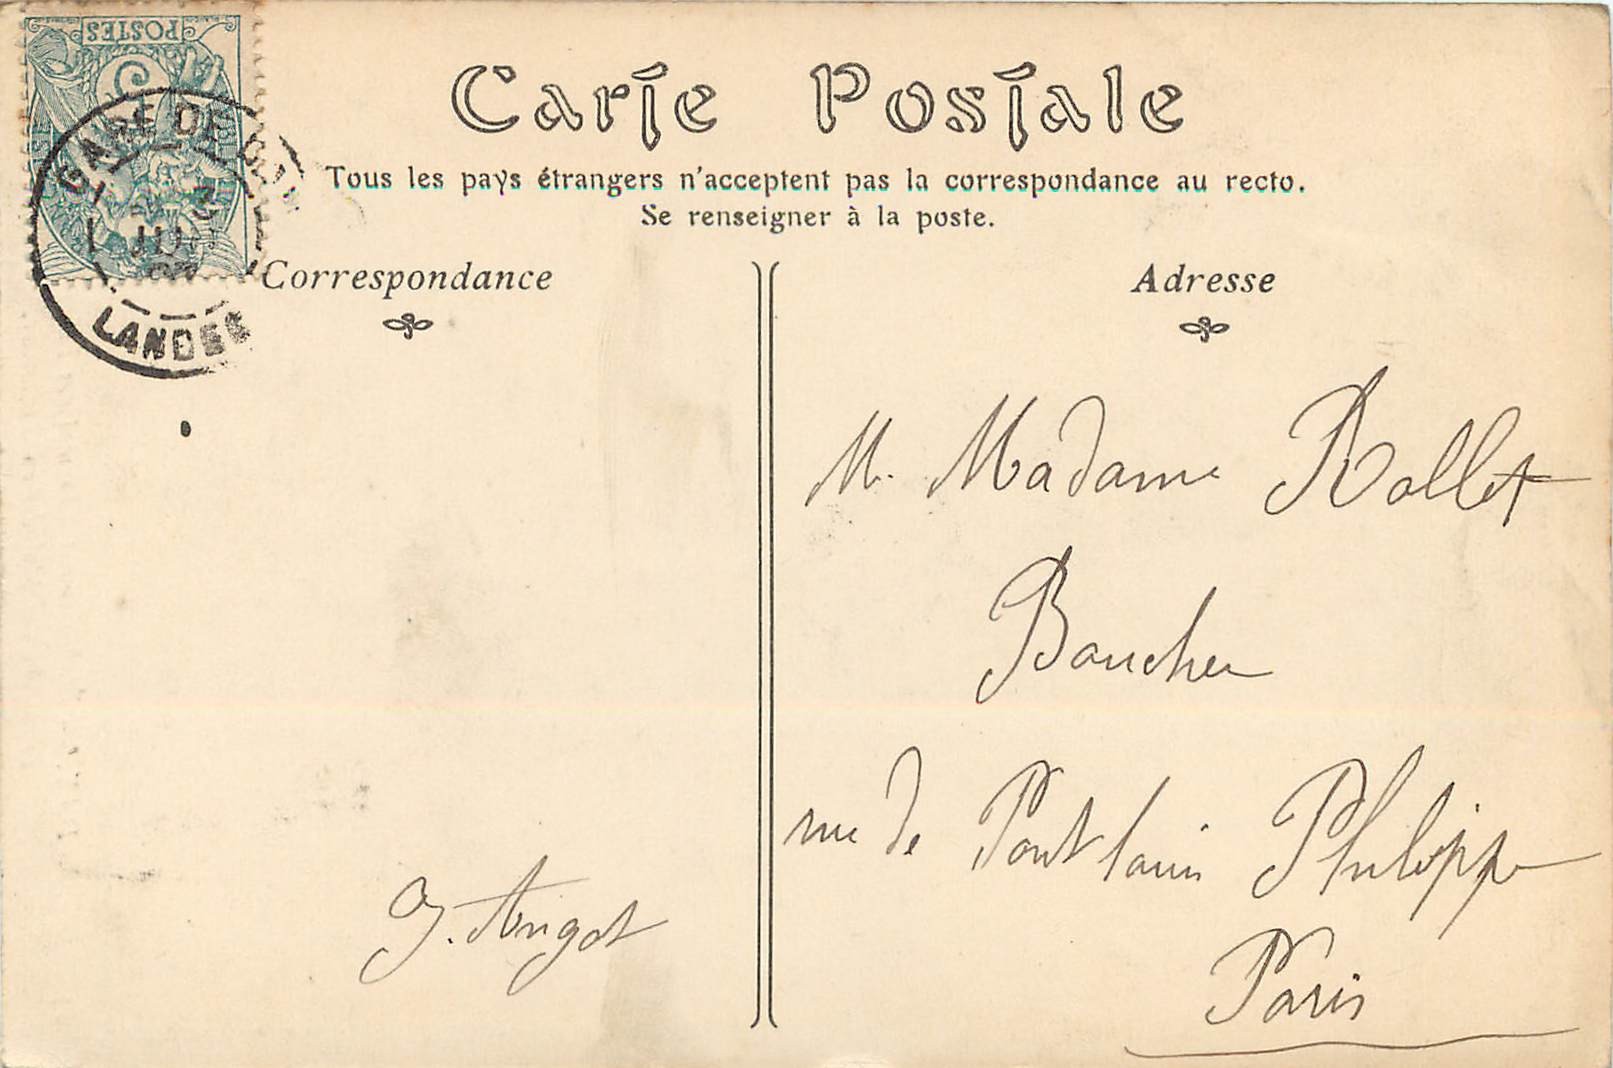 POSTES
5
GARE DE
3
JUI
07
LANDES
Carte Postale
Tous les pays étrangers n'acceptent pas la correspondance au recto.
Se renseigner à la poste.
Correspondance
J. Angot
Adresse
M. Madame Rollet
Boucher
rue de Pont louis Philippe
Paris